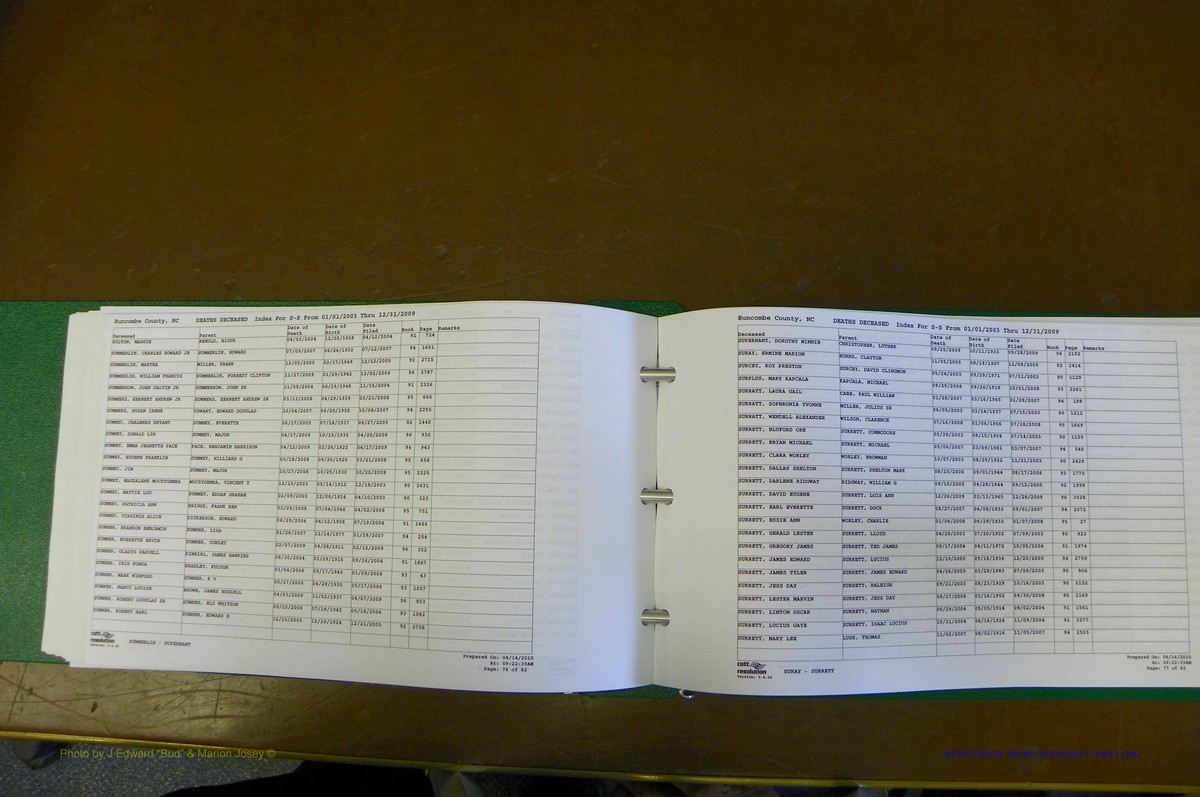 Buncombe County, NC DEATHS DECEASED Index For S-S From 01/01/2003 Thru 12/31/2009
Deceased Parent Date of Death Date of Birth Date Filed Book Page Remarks
SULTON, MAGGIE ARNOLD, RIGGS 04/02/2004 12/02/1918 04/12/2004 91 724
SUMMERLIN, CHARLES HOWARD JR SUMMERLIN, HOWARD 07/09/2007 04/26/1932 07/12/2007 94 1601
SUMMERLIN, MARTHA MILLER, FRANK 12/05/2005 02/17/1949 12/12/2005 92 2715
SUMMERLIN, WILLIAM FRANCIS SUMMERLIN, FORREST CLIFTON 11/27/2009 01/29/1942 12/02/2009 96 2787
SUMMERSON, JOHN CALVIN JR SUMMERSON, JOHN SR 11/09/2004 11/18/2004 91 2326
SUMMERS, HERBERT ANDREW JR SUMMERS, HERBERT ANDREW SR 03/13/2008 04/29/1939 03/23/2008 95 665
SUMMERS, SUSAN IRENE COWART, EDWARD DOUGLAS 10/04/2007 06/20/1952 10/08/2007 94 2255
SUMMEY, CHALMERS BRYANT SUMMEY, EVERETTE 06/17/2005 07/18/1937 06/27/2005 92 1440
SUMMEY, DONALD LIN SUMMEY, MAJOR 04/17/2009 10/15/1935 04/20/2009 96 920
SUMMEY, EMMA JEANETTE PACE PACE, BENJAMIN HARRISON 04/12/2009 02/06/1922 04/17/2009 96 943
SUMMEY, EUGENE FRANKLIN SUMMEY, HILLIARD G 03/18/2008 08/20/1920 03/21/2008 95 658
SUMMEY, JIM SUMMEY, MAJOR 10/17/2008 10/25/1930 10/20/2008 95 2325
SUMMEY, MAGDALENE MOCZYGEMBA MOCZYGEMBA, VINCENT T 12/10/2003 05/14/1912 12/18/2003 90 2631
SUMMEY, MATTIE LOU SUMMEY, EDGAR GRAHAM 02/09/2003 12/08/1914 04/10/2003 90 323
SUMMEY, PATRICIA ANN BRIGGS, FRANK BEN 03/29/2008 07/04/1948 04/02/2008 95 751
SUMMEY, VIRGINIA ALICE DICKERSON, HOWARD 06/29/2004 04/12/1908 07/19/2004 91 1466
SUMNER, BRANDON BENJAMIN SUMNER, LISA 01/28/2007 12/14/1977 01/29/2007 94 254
SUMNER, EVERETTE ERVIN SUMNER, CONLEY 02/07/2009 04/28/1911 02/12/2009 96 352
SUMNER, GLADYS PARVELL KIMBIEL, JAMES HAWKINS 08/10/2004 01/29/1915 08/16/2004 91 1867
SUMNER, IRIS FONDA BRADLEY, FULTON 01/04/2006 09/17/1940 01/09/2006 93 43
SUMNER, MARK WINFORD SUMNER, P V 05/17/2006 04/28/1935 05/17/2006 93 1057
SUMNER, NANCY LOUISE BROWN, JAMES RUSSELL 04/03/2009 11/02/1937 04/07/2009 96 853
SUMNER, ROBERT DOUGLAS SR SUMNER, ELI WHITSON 05/10/2006 07/18/1943 05/18/2006 93 1082
SUMNER, ROBERT EARL SUMNER, EDWARD B 12/15/2005 12/29/1924 12/21/2005 92 2758
cott resolution
SUMMERLIN - SUPERNANT
Prepared On: 04/14/2010
At: 09:22:39AM
Page: 76 of 82
Buncombe County, NC DEATHS DECEASED Index For S-S From 01/01/2003 Thru 12/31/2009
Deceased Parent Date of Death Date of Birth Date Filed Book Page Remarks
SUPERNANT, DOROTHY MINNIE CHRISTOPHER, LUTHER 09/25/2009 10/11/1933 09/28/2009 96 2192
SURAY, ERMINE MARION BURNS, CLAYTON 11/05/2005 08/19/1907 11/08/2005 92 2414
SURCEY, ROY PRESTON SURCEY, DAVID CLINGMON 05/24/2003 09/29/1971 07/11/2003 90 1229
SURPLUS, MARY KAPCALA KAPCALA, MICHAEL 09/29/2008 09/26/1918 10/01/2008 95 2261
SURRATT, LAURA GAIL CABE, PAUL WILLIAM 01/28/2007 03/16/1965 01/31/2007 94 198
SURRATT, SOPHRONIA YVONNE MILLER, JULIUS SR 06/05/2003 03/14/1937 07/15/2003 90 1212
SURRATT, WENDELL ALEXANDER WILSON, CLARENCE 07/16/2008 01/06/1956 07/18/2008 95 1669
SURRETT, BLUFORD OBE SURRETT, COMMODORE 05/28/2003 08/15/1904 07/14/2003 90 1159
SURRETT, BRIAN MICHAEL SURRETT, MICHAEL 03/06/2007 03/09/1981 03/07/2007 94 540
SURRETT, CLARA WORLEY WORLEY, BROWMAN 10/07/2003 08/29/1921 11/21/2003 90 2429
SURRETT, DALLAS SHELTON SURRETT, SHELTON MARK 08/15/2006 09/01/1944 08/17/2006 93 1775
SURRETT, DARLENE RIDGWAY RIDGWAY, WILLIAM G 09/10/2005 08/28/1944 09/12/2005 92 1998
SURRETT, DAVID EUGENE SURRETT, LOIS ANN 12/26/2009 03/13/1965 12/28/2009 96 3028
SURRETT, EARL EVERETTE SURRETT, DOCK 08/27/2007 04/08/1933 09/01/2007 94 2072
SURRETT, ESSIE ANN WORLEY, CHARLIE 01/06/2008 06/29/1933 01/07/2008 95 27
SURRETT, GERALD LESTER SURRETT, LLOYD 04/29/2003 07/20/1932 05/09/2003 90 923
SURRETT, GREGORY JAMES SURRETT, TED JAMES 09/17/2004 04/11/1972 10/05/2004 91 1974
SURRETT, JAMES EDWARD SURRETT, LUCIUS 12/19/2005 05/18/1936 12/20/2005 92 2759
SURRETT, JAMES TYLER SURRETT, JAMES EDWARD 04/26/2003 03/29/1983 07/09/2003 90 904
SURRETT, JESS DAY SURRETT, RALEIGH 09/21/2003 08/23/1929 10/16/2003 90 2152
SURRETT, LESTER MARVIN SURRETT, JESS DAY 09/17/2008 03/16/1952 09/30/2008 95 2169
SURRETT, LINTON OSCAR SURRETT, NATHAN 05/29/2004 05/05/1914 08/02/2004 91 1561
SURRETT, LUCIUS GAYE SURRETT, ISAAC LUCIUS 10/31/2004 06/16/1924 11/09/2004 91 2277
SURRETT, MARY LEE LUSK, THOMAS 11/02/2007 08/02/1916 11/05/2007 94 2503
cott resolution
SURAY - SURRETT
Prepared On: 04/14/2010
At: 09:22:39AM
Page: 77 of 82
Photo by J Edward "Bud" & Marion Josey ©